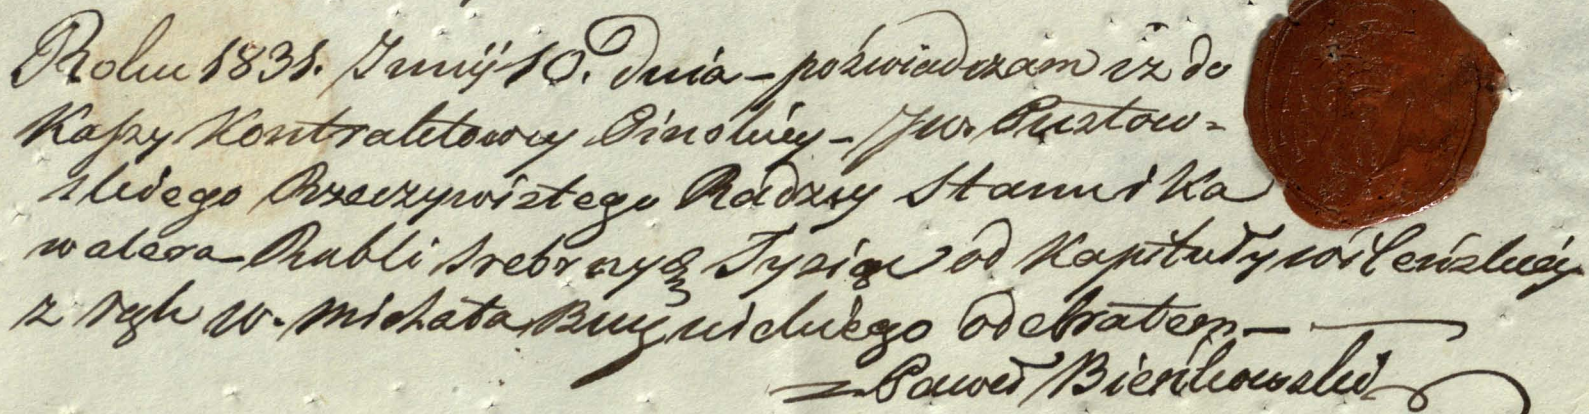 Roku 1831. Junij 10. dnia – poświadczam iż do
Kassy Kontraktowey Pinskiey – Jw. Pusłow=
skiego Rzeczywistego Radzcy Stanu i Ka
walera Rubli srebrnych Tysiąc od Kapituły wileńskiey
z rąk W. Michała Buynickiego odebrałem –
Paweł Bieńkowski